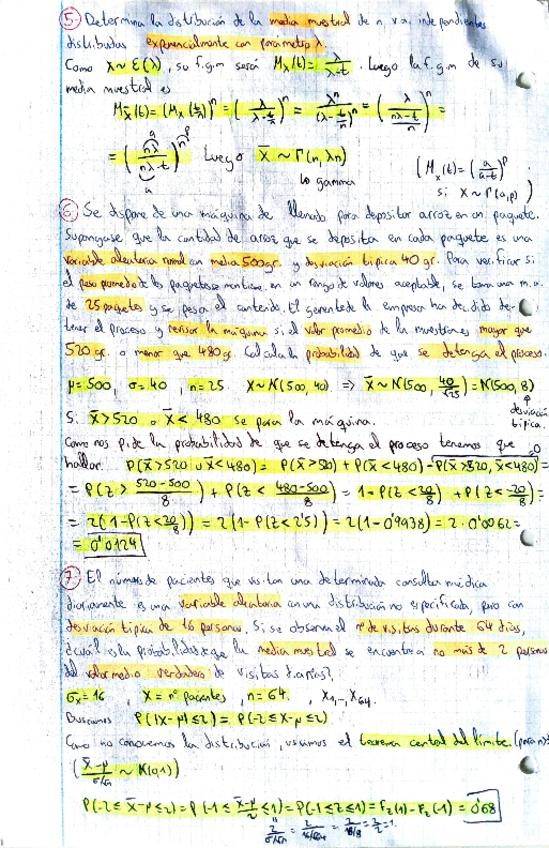 5. Determina la distribución de la media muestral de n v.a. independientes
distribuidas exponencialmente con parámetro λ.
Como X~E(λ), su f.g.m será Mx(t)= λ/(λ-t). Luego la f.g.m de su
media muestral es
Mx̄(t)=(Mx(t/n))^n=(λ/(λ-t/n))^n= λ^n/(λ-t/n)^n=(λ/((nλ-t)/n))^n=
=(nλ/(nλ-t))^n Luego X̄~Γ(n,λn) (Mx(t)=(a/(a-t))^p
a p
a
lo gamma si X~Γ(a,p))
6. Se dispone de una máquina de llenado para depositar arroz en un paquete.
Supongase que la cantidad de arroz que se deposita en cada paquete es una
variable aleatoria normal con media 500gr. y desviación típica 40 gr. Para verificar si
el peso promedio de los paquetes se mantiene en un rango de valores aceptable, se toma una m.a.
de 25 paquetes y se pesa el contenido. El gerente de la empresa ha decidido de-
tener el proceso y revisar la máquina si el valor promedio de la muestra es mayor que
520 gr. o menor que 480 gr. Calcula la probabilidad de que se detenga el proceso.
μ=500, σ=40, n=25. X~N(500,40) => X̄~N(500, 40/√25)=N(500,8)
desviación
típica.
Si X̄>520 o X̄<480 se para la máquina.
Como nos pide la probabilidad de que se detenga el proceso tenemos que
0
hallar: P(X̄>520 ∪ X̄<480)= P(X̄>520)+P(X̄<480)-P(X̄>520, X̄<480)=
=P(Z> (520-500)/8)+P(Z< (480-500)/8)=1-P(Z<20/8)+P(Z<-20/8)=
=2(1-P(Z<20/8))=2(1-P(Z<2'5))=2(1-0'9938)=2·0'0062=
=0'0124
7. El número de pacientes que visitan una determinada consulta médica
diariamente es una variable aleatoria con una distribución no especificada, pero con
desviación típica de 16 personas. Si se observa el nº de visitas durante 64 días,
¿cuál es la probabilidad de que la media muestral se encuentre a no más de 2 personas
del valor medio verdadero de visitas diarias?
σx=16, X=nº pacientes, n=64. X1,...,X64.
Buscamos P(|X̄-μ|≤2)=P(-2≤X̄-μ≤2)
Como no conocemos la distribución, usamos el teorema central del límite (para n)
((X̄-μ)/(σ/√n) ~ N(0,1))
P(-2≤X̄-μ≤2)=P(-1≤(X̄-μ)/2≤1)=P(-1≤Z≤1)=Fz(1)-Fz(-1)=0'68
2/(σ/√n)=2/(16/√64)=2/(16/8)=2/2=1.